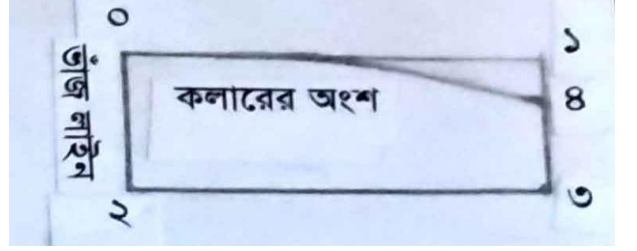 ০
১
ভাঁজ লাইন
কলারের অংশ
৪
২
৩